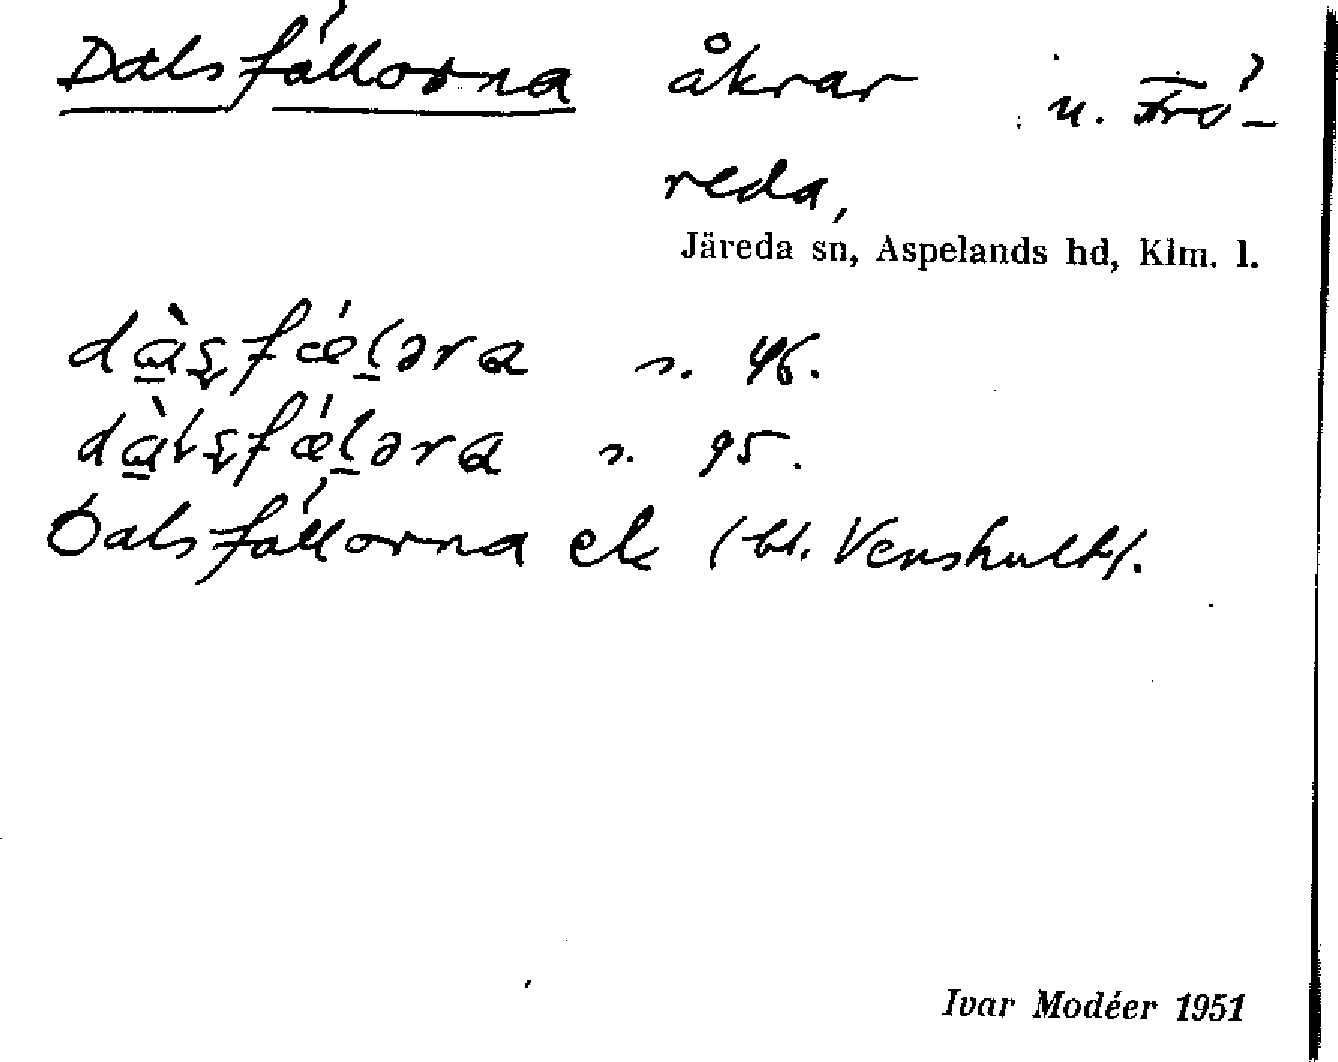 Dalsfällorna åkrar u. Frö-
reda,
Järeda sn, Aspelands hd, Klm. l.
dàsfǽləra s. 46.
dàlsfǽləra s. 95.
Dalsfällorna ek (bl. Venshult).
Ivar Modéer 1951